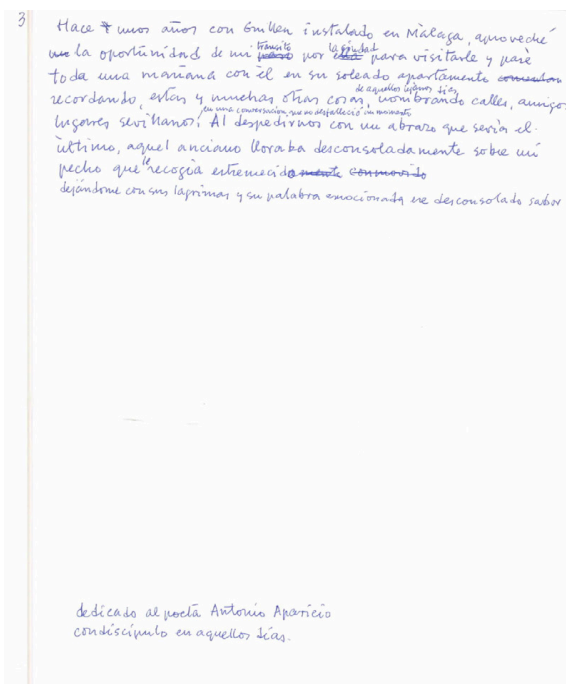 3
Hace unos años con Guillen instalado en Màlaga, aproveché
la oportunidad de mi tránsito por la ciudad para visitarle y pasé
toda una mañana con èl en su soleado apartamento
recordando, estas y muchas otras cosas de aquellos lejanos días, nombrando calles, amigos
lugares sevillanos, en una conversación que no desfalleció un momento. Al despedirnos con un abrazo que sería el
ùltimo, aquel anciano lloraba desconsoladamente sobre mi
pecho que le recogía estremecido
dejándome con sus lágrimas y su palabra emocionada ese desconsolado sabor
dedicado al poeta Antonio Aparicio
condiscípulo en aquellos días.